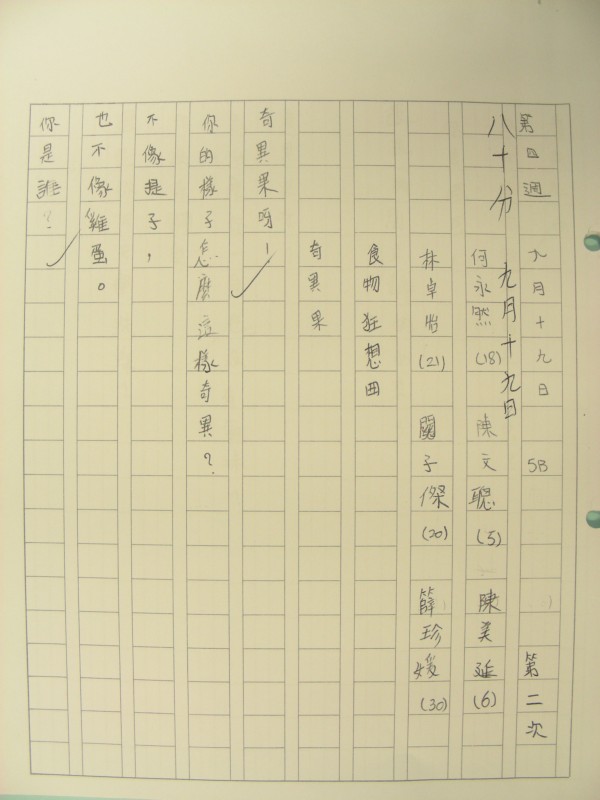 第四週 九月十九日 5B 第二次
八十分 九月十九日
何永然(18) 陳文聰(5) 陳美延(6)
林卓怡(21) 關子傑(20) 薛珍媛(30)
食物狂想曲
奇異果
奇異果呀！
你的樣子怎麼這樣奇異？
不像提子，
也不像雞蛋。
你是誰？